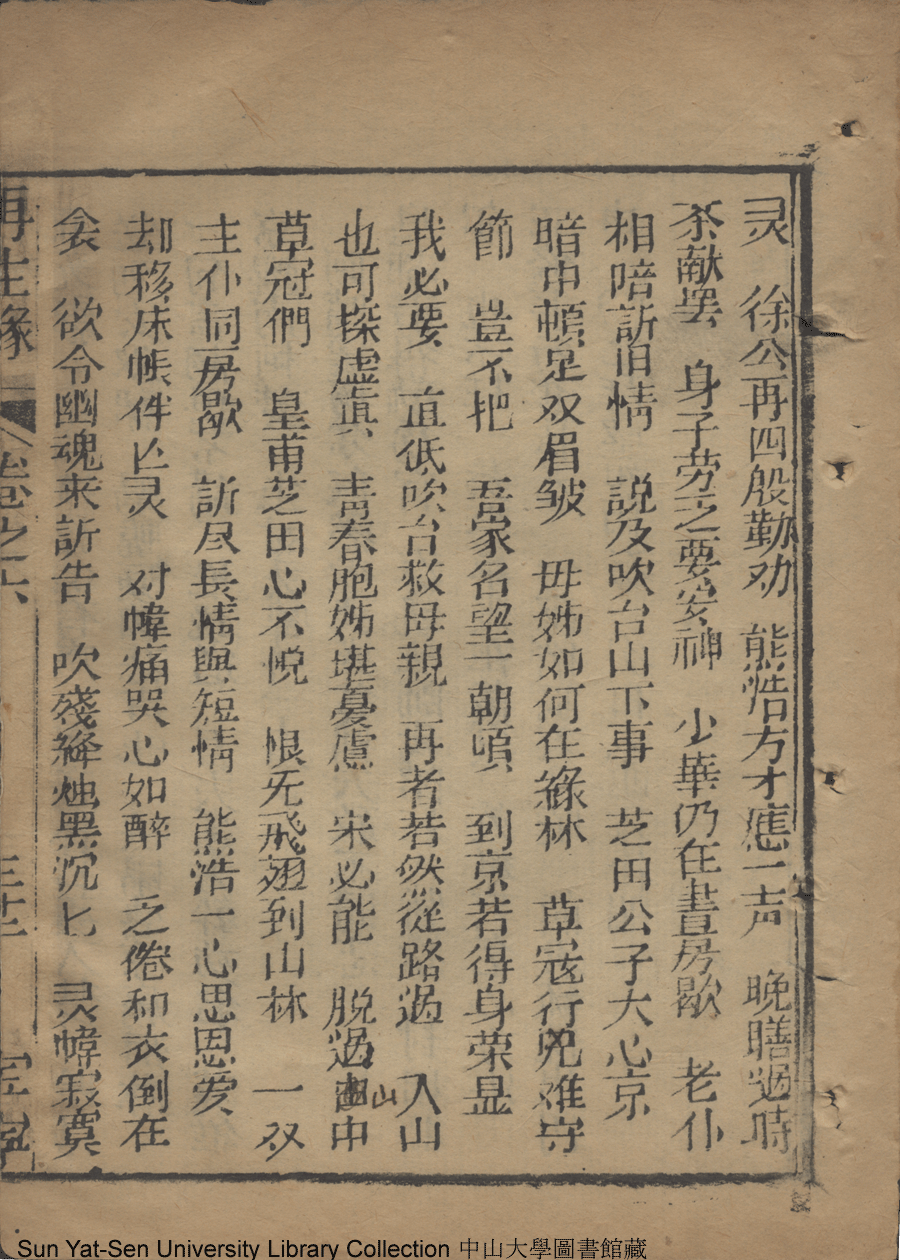 灵　徐公再四殷勤劝　熊浩方才應一声　晚膳过時
茶献罢　身子劳乏要安神　少華仍在書房歇　老仆
相陪訢旧情　説及吹台山下事　芝田公子大心京
暗中頓足双眉皱　母姊如何在綠林　草寇行兇难守
節　豈不把　吾家名望一朝頃　到京若得身荣显
我必要　直低吹台救母親　再者若然從路过　入山
也可探虚真　青春胞姊堪憂慮　宋必能　脱过山中
草冦們　皇甫芝田心不悅　恨旡飛翅到山林　一双
主仆同房歇　訢尽長情與短情　熊浩一心思恩爱
却移床帳伴亡灵　对幃痛哭心如醉　乏倦和衣倒在
衾　欲令幽魂来訢告　吹殘絳烛黑沉匕　灵幃寂寞
再生緣　卷之六
Sun Yat-Sen University Library Collection 中山大學圖書館藏